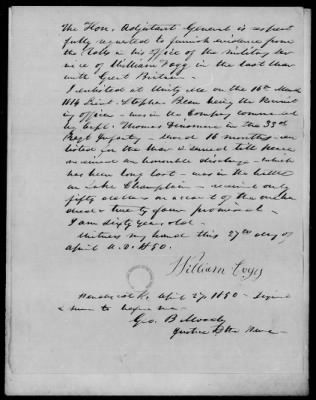 The Hon. Adjutant General is respect
fully requested to furnish evidence from
the Rolls in his office of the military ser
vice of William Fogg in the last war
with Great Britain.
I enlisted at Unity Me on the 16th March
1814 Lieut. Stephen Bean being the Recruit
ing officer - was in the Company command
ed by Capt. Thomas in the 33rd
Regt Infantry - served 16 months - en
listed for the War & served till peace
received an honorable discharge - which
has been long lost - was in the battle
on Lake Champlain - received only
fifty dollars on account of the one hun
dred & twenty four promised.
I am sixty years old.
Witness my hand this 27th day of
April A.D. 1850.
William Fogg
April 27 1850 - Signed
& sworn to before me
Geo. B Moody
Justice of the Peace